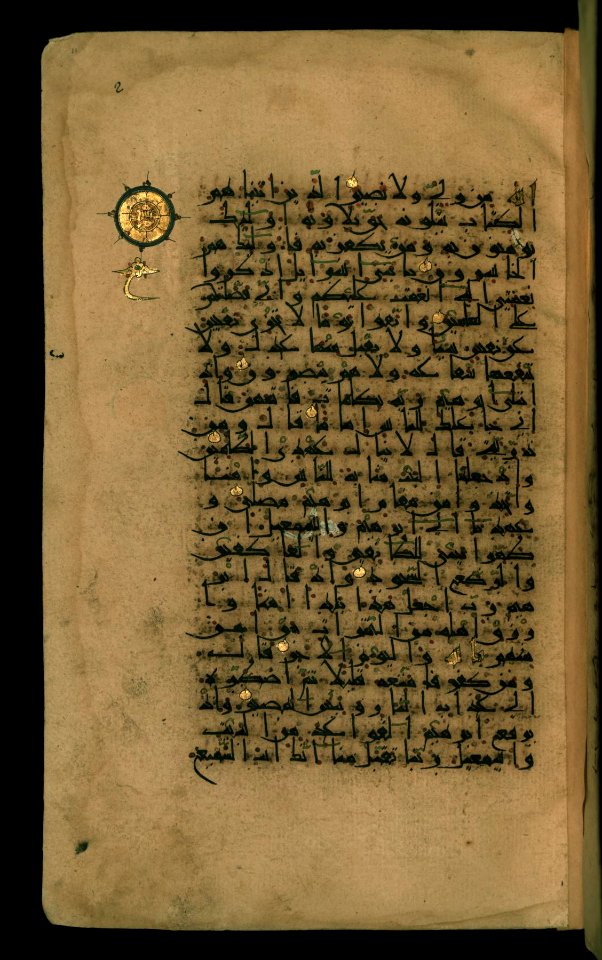 2
الله من ولي ولا نصير الذين اتينهم
الكتاب يتلونه حق تلاوته اولئك
يؤمنون به ومن يكفر به فاولئك هم
الخاسرون يا بني اسرائيل اذكروا
نعمتي التي انعمت عليكم واني فضلتكم
على العالمين واتقوا يوما لا تجزي نفس
عن نفس شيئا ولا يقبل منها عدل ولا
تنفعها شفاعة ولا هم ينصرون واذ
ابتلى ابرهيم ربه بكلمات فاتمهن قال
اني جاعلك للناس اماما قال ومن
ذريتي قال لا ينال عهدي الظالمين
واذ جعلنا البيت مثابة للناس وامنا
واتخذوا من مقام ابرهيم مصلى و
عهدنا الى ابرهيم واسمعيل ان
طهرا بيتي للطائفين والعاكفين
والركع السجود واذ قال ابر
هيم رب اجعل هذا بلدا امنا وا
رزق اهله من الثمرات من امن
منهم بالله واليوم الاخر قال
ومن كفر فامتعه قليلا ثم اضطره
الى عذاب النار وبئس المصير واذ
يرفع ابرهيم القواعد من البيت
واسمعيل ربنا تقبل منا انك انت السميع